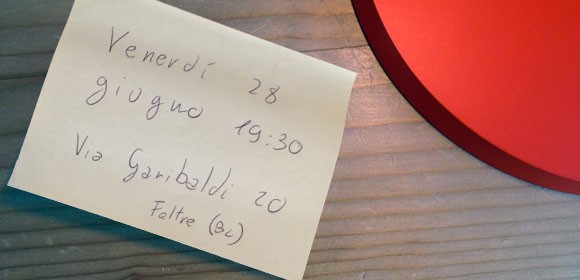 Venerdí 28
giugno 19:30
Via Garibaldi 20
Feltre (BL)